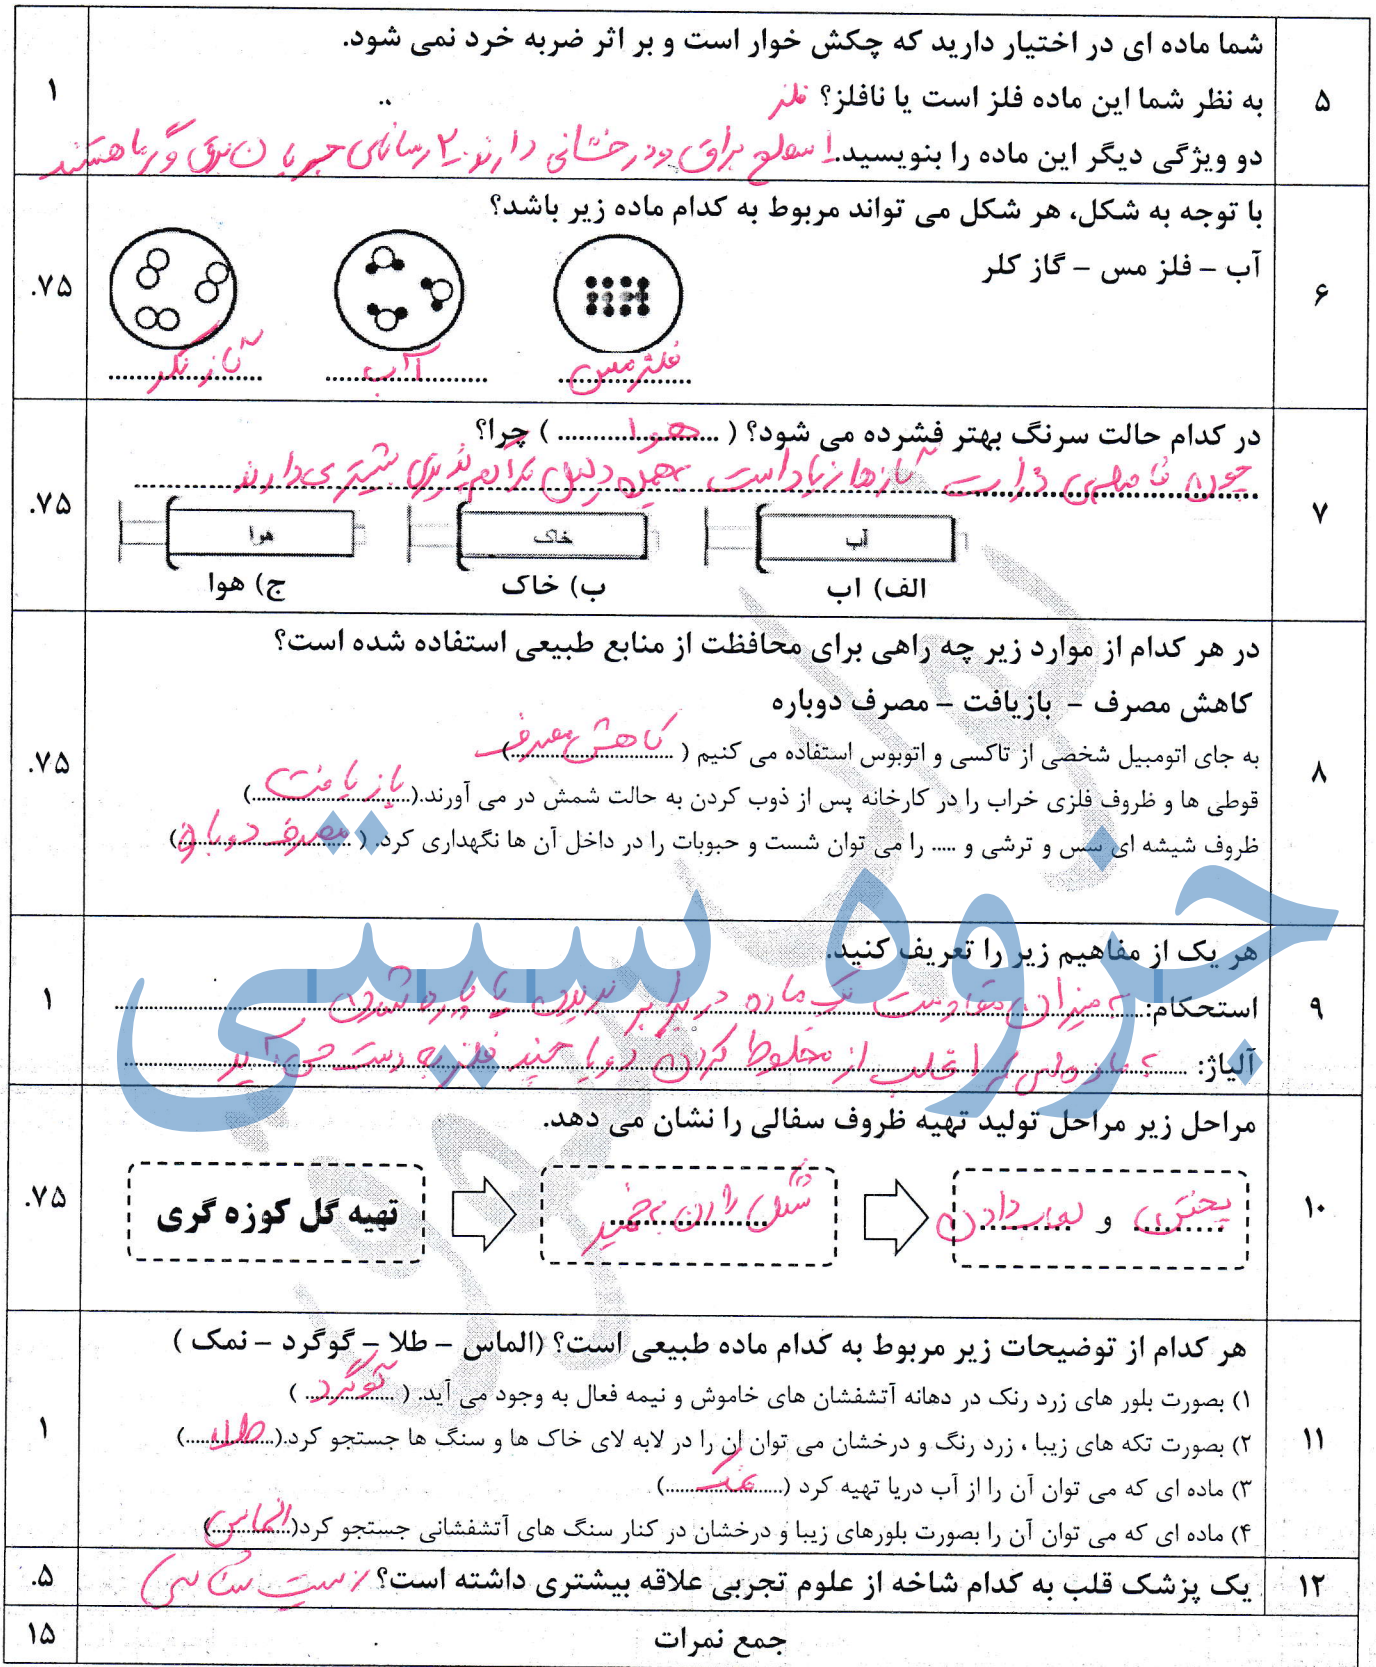 ۵
شما ماده ای در اختیار دارید که چکش خوار است و بر اثر ضربه خرد نمی شود.
به نظر شما این ماده فلز است یا نافلز؟ فلز
دو ویژگی دیگر این ماده را بنویسید. ۱ سطح براق و درخشانی دارند ۲ رسانای جریان برق و گرما هستند
۱
۶
با توجه به شکل، هر شکل می تواند مربوط به کدام ماده زیر باشد؟
آب – فلز مس – گاز کلر
فلز مس آب گاز کلر
.۷۵
۷
در کدام حالت سرنگ بهتر فشرده می شود؟ (هوا) چرا؟
چون فاصله‌ی ذرات گازها زیاد است به همین دلیل تراکم پذیری بیشتری دارند
آب خاک هوا
الف) اب ب) خاک ج) هوا
.۷۵
۸
در هر کدام از موارد زیر چه راهی برای محافظت از منابع طبیعی استفاده شده است؟
کاهش مصرف – بازیافت – مصرف دوباره
به جای اتومبیل شخصی از تاکسی و اتوبوس استفاده می کنیم (کاهش مصرف)
قوطی ها و ظروف فلزی خراب را در کارخانه پس از ذوب کردن به حالت شمش در می آورند.(بازیافت)
ظروف شیشه ای سس و ترشی و ..... را می توان شست و حبوبات را در داخل آن ها نگهداری کرد. (مصرف دوباره)
.۷۵
جزوه سیتی
۹
هر یک از مفاهیم زیر را تعریف کنید.
استحکام: به میزان مقاومت یک ماده در برابر بریدن یا پاره شدن
آلیاژ: اغلب از مخلوط کردن دو یا چند فلز به دست می آید
۱
۱۰
مراحل زیر مراحل تولید تهیه ظروف سفالی را نشان می دهد.
تهیه گل کوزه گری شکل دادن به خمیر پختن و لعاب دادن
.۷۵
۱۱
هر کدام از توضیحات زیر مربوط به کدام ماده طبیعی است؟ (الماس – طلا – گوگرد – نمک )
۱) بصورت بلور های زرد رنک در دهانه آتشفشان های خاموش و نیمه فعال به وجود می آید. (گوگرد)
۲) بصورت تکه های زیبا ، زرد رنگ و درخشان می توان ان را در لابه لای خاک ها و سنگ ها جستجو کرد.(طلا)
۳) ماده ای که می توان آن را از آب دریا تهیه کرد (نمک)
۴) ماده ای که می توان آن را بصورت بلورهای زیبا و درخشان در کنار سنگ های آتشفشانی جستجو کرد(الماس)
۱
۱۲
یک پزشک قلب به کدام شاخه از علوم تجربی علاقه بیشتری داشته است؟ زیست شناسی
.۵
جمع نمرات
۱۵